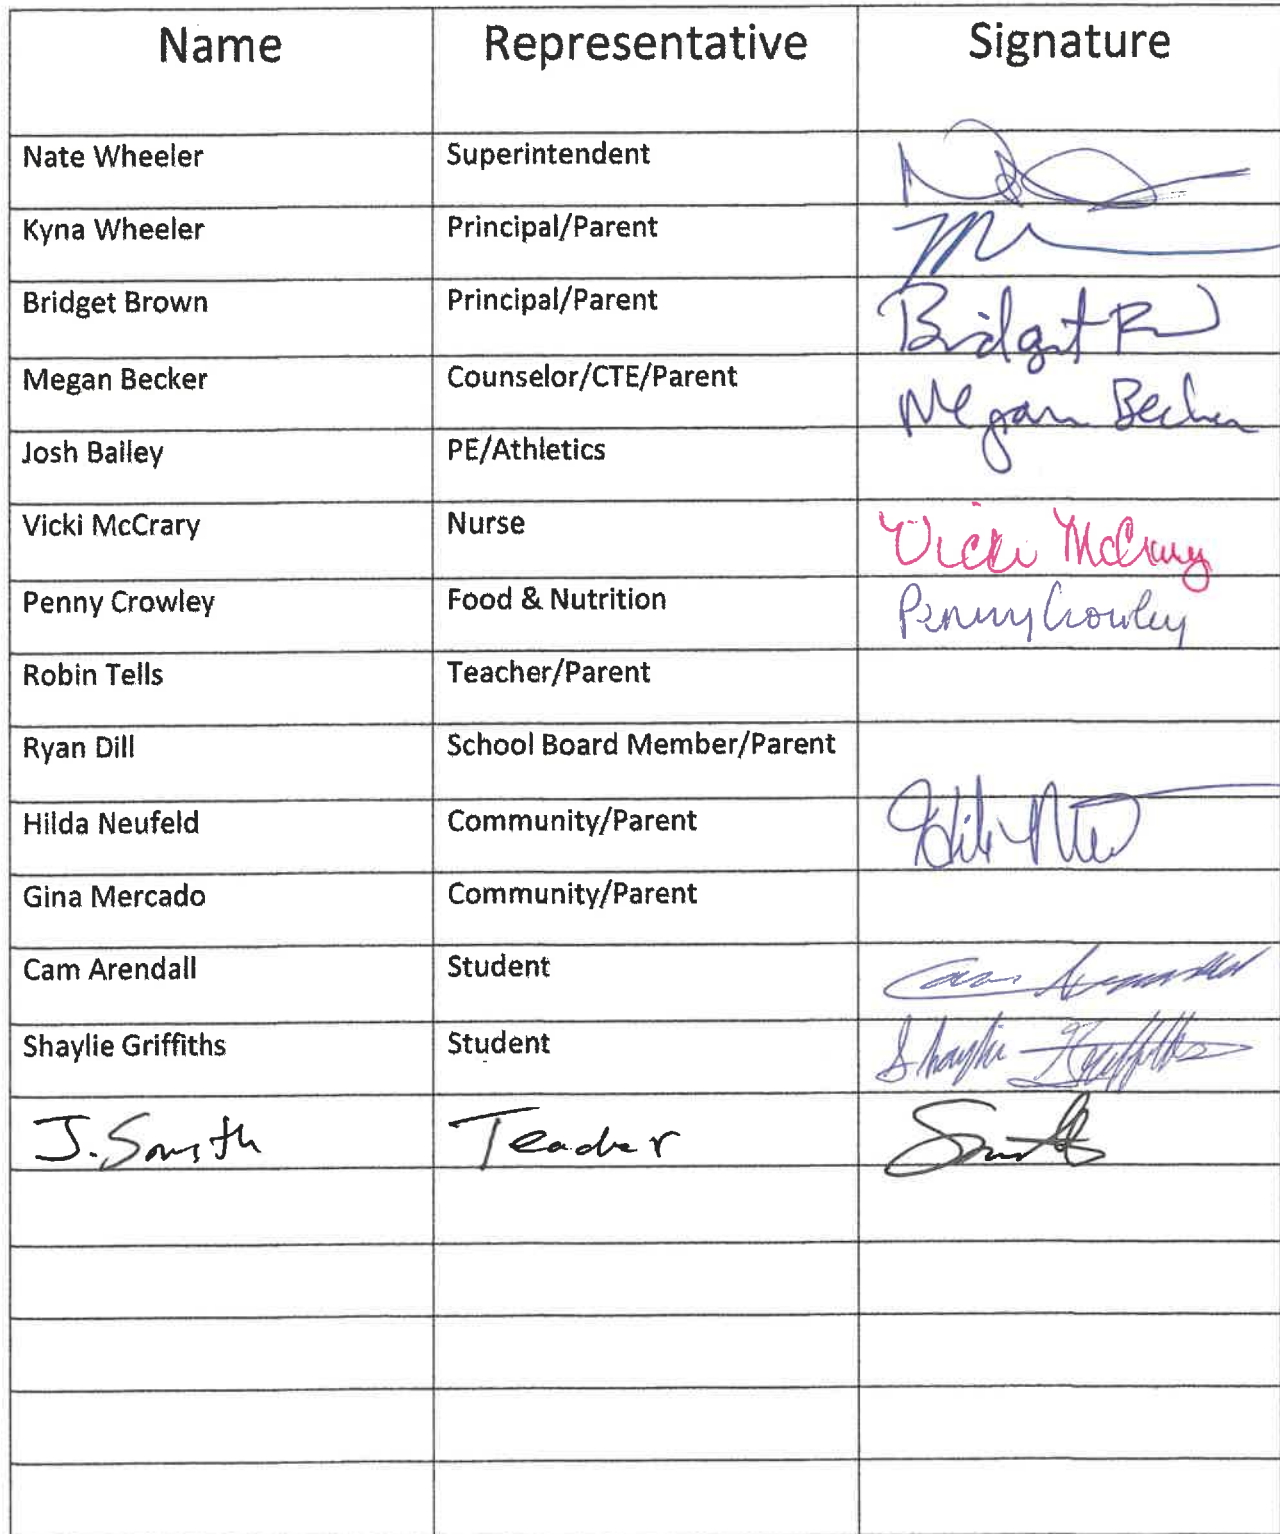 Name Representative Signature
Nate Wheeler Superintendent
Kyna Wheeler Principal/Parent
Bridget Brown Principal/Parent Bridget
Megan Becker Counselor/CTE/Parent Megan Becker
Josh Bailey PE/Athletics
Vicki McCrary Nurse Vicki McCrary
Penny Crowley Food & Nutrition Penny Crowley
Robin Tells Teacher/Parent
Ryan Dill School Board Member/Parent
Hilda Neufeld Community/Parent
Gina Mercado Community/Parent
Cam Arendall Student Cam Arendall
Shaylie Griffiths Student Shaylie Griffiths
J. Smith Teacher Smith